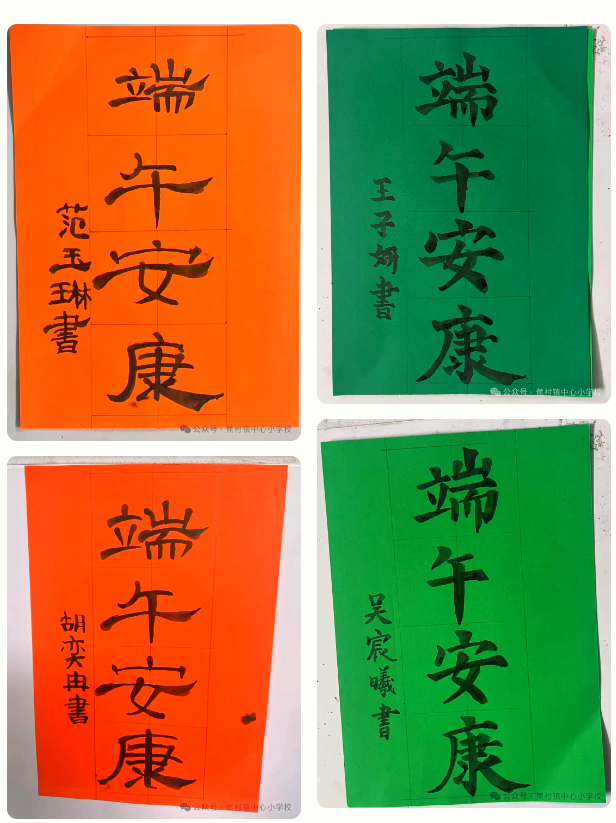 端午安康
范玉琳書
公众号·蕉村镇中心小学校
端午安康
王子妍書
公众号·蕉村镇中心小学校
端午安康
胡奕冉書
公众号·蕉村镇中心小学校
端午安康
吴宸曦書
公众号·蕉村镇中心小学校